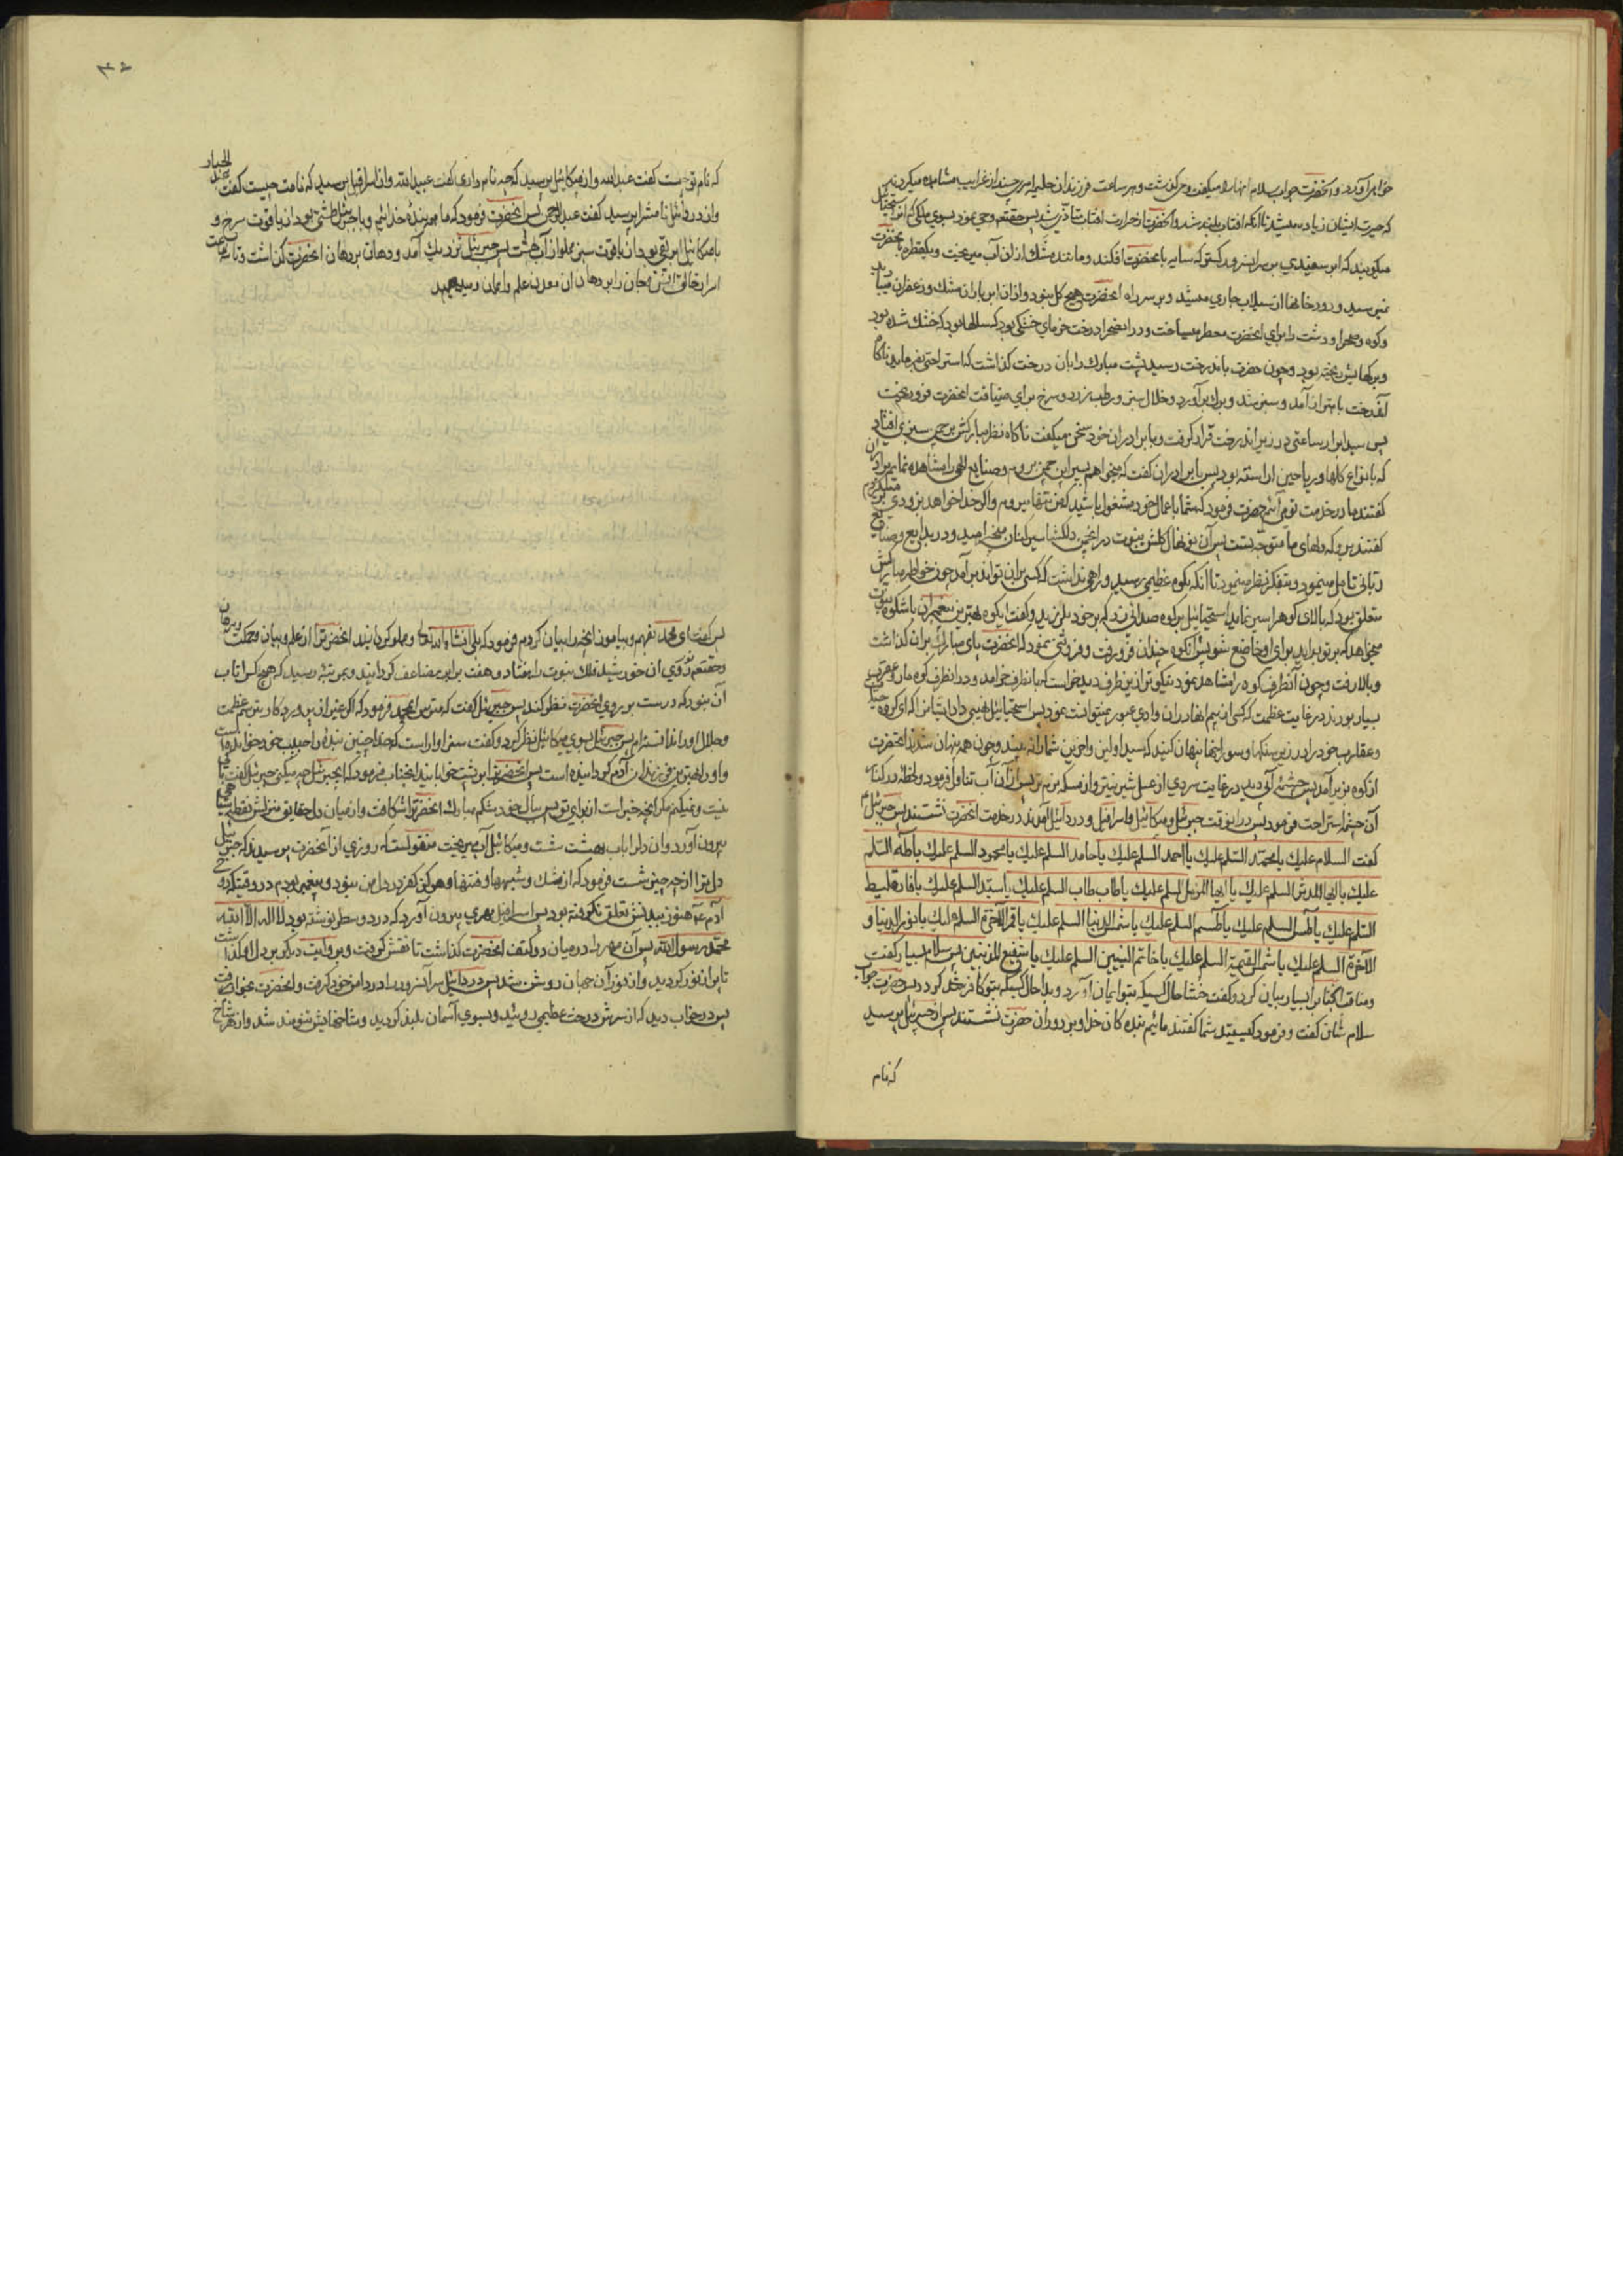 خواهر آورد و آنحضرت جواب سلام آنها را میگفت و می گذشت و هر ساعت فرزندان حلیمه هر چند از غرایب مشاهده میکردند
که حیرت ایشان زیاده میشد تا آنکه آفتاب بلند شد و آنحضرت از حرارت آفتاب متأذی شد پس حقتعالی وحی نمود بسوی ملکی که او را استحیائیل
میگویند که ابر سفیدی بر سر آن سرور کستر که سایه بآنحضرت افکند و مانند مشک از آن آب میریخت و یکقطره بآنحضرت
نمیرسید و رودخانها از سیلاب جاری میشد و بر سر راه آنحضرت هیچ گل نبود و از آن ابر باران مشک و زعفران میبارید
و کوه و صحرا و دشت را برای آنحضرت معطر میساخت و در آن صحرا درخت خرمای خشکی بود که سالها بود که خشک شده بود
و برکهایش ریخته بود و چون حضرت بآندرخت رسید پشت مبارک را بان درخت گذاشت که استراحتی بفرماید ناگاه
آندرخت باهتزاز آمد و سبز شد و برگ برآورد و خلال سبز و رطب زرد و سرخ برای ضیافت آنحضرت فرو ریخت
پس سید ابرار ساعتی در زیر آندرخت قرار گرفت و با برادران خود سخن میگفت ناگاه نظر مبارکش بر چمن سبزی افتاد
که بانواع گلها و ریاحین آراسته بود پس با برادران گفت که میخواهم بسیر این چمن بروم و صنایع الهی را مشاهده نمایم برادران
گفتند ما در خدمت تو می آئیم حضرت فرمود که شما باعمال خود مشغول باشید که من تنها میروم و اگر خدا خواهد بزودی بر میگردم
گفتند برو که دلهای ما متوجه تست پس آن نونهال گلشن نبوت در آنچمن دلگشا سیر کنان میخرامید و در بدایع و صنایع
ربانی تأمل مینمود و بتفکر نظر مینمود تا آنکه بکوه عظیمی رسید و راهی نداشت که کسی بر آن تواند بر آمد چون خواطر مبارکش
متعلق بود که بالای کوه را سیر نماید استحیائیل بر کوه صدائی زد که بر خود بلرزید و گفت ایکوه بهترین پیغمبران باشکوه نبوت
میخواهد که بر تو بر آید برای او خاضع شو پس آنکوه چندان فرو رفت و فروتنی نمود که آنحضرت پای مبارک بر آن گذاشت
و بالا رفت و چون آنطرف کوه را مشاهده نمود نیکوتر از ینطرف دید خواست که بآنطرف خرامد و در آنطرف کوه مار و عقرب
بسیار بودند در غایت عظمت که کسی از بیم آنها در آن وادی عبور نمیتوانست نمود پس استحیائیل نهیبی داد ایشانرا که ای گروه
و عقارب خود را در زیر سنگها و سوراخها پنهان کنید که سید اولین و آخرین شما را نه بیند و چون همه پنهان شدند آنحضرت
از کوه بزیر آمد پس چشمه آبی دید در غایت سردی از عسل شیرین تر و از مسکه نرم تر پس از آن آب تناول فرمود و لحظه در کنار
آن چشمه استراحت فرمود پس در آنوقت جبرئیل و میکائیل و اسرافیل و دردائیل آمدند در خدمت آنحضرت نشستند پس جبرئیل
گفت السلام علیک یا محمد السلم علیک یا احمد السلم علیک یا حامد السلم علیک یا محمود السلم علیک یا طه السلم
علیک یا ایها المدثر السلم علیک یا ایها المزمل السلم علیک یا طاب طاب السلم علیک یا سید السلم علیک یا فارقلیط
السلم علیک یا طس السلم علیک یا طسم السلم علیک یا شمس الدنیا السلم علیک یا قمر الآخرة السلم علیک یا نور الدنیا و
الآخرة السلم علیک یا شمس القیمة السلم علیک یا خاتم النبیین السلم علیک یا شفیع المذنبین پس سلام بسیار گفت
و مناقب آنجنابرا بسیار بیان کرد و گفت خشا حال کسیکه بتو ایمان آورد و بدا حال کسیکه بتو کافر شود پس حضرت جواب
سلام شان گفت و فرمود کیستید شما گفتند مائیم بنده کان خدا و بر دور آن حضرت نشستند پس از جبرئیل پرسید
که نام
که نام تو چیست گفت عبدالله و از میکائیل پرسید که چه نام داری گفت عبیدالله و از اسرافیل پرسید که نامت چیست گفت عبدالجبار
و از دردائیل نامش را پرسید گفت عبدالرحمن پس آنحضرت فرمود که ما همه بنده خدائیم و با جبرئیل طشتی بود از یاقوت سرخ و
با میکائیل ابریقی بود از یاقوت سبز مملو از آب بهشت پس جبرئیل نزدیک آمد و دهان بر دهان آنحضرت گذاشت و تا سه ساعت
اسرار خالق انس و جان را بر دهان آن معدن علم و ایمان دمید
پس گفت ای محمد بفهم و بیاموز آنچه را بیان کردم فرمود که بلی انشاءالله تعالی و مملو گردانید آنحضرترا از علم و بیان و حکمت و برهان
و حقتعالی نور روی آن خورشید فلک نبوت را هفتاد و هفت برابر مضاعف گردانید و بمرتبه رسید که هیچکس را تاب
آن نبود که درست بر روی آنحضرت نظر کند پس جبرئیل گفت که مترس ایمحمد فرمود که اگر غیر از پروردگار بترسم عظمت
و جلال او را نشناخته ام پس جبرئیل بسوی میکائیل نظر کرد و گفت سزاوار است که خدا چنین بنده را حبیب خود خواند
و او را بهترین فرزندان آدم گردانیده است پس آنحضرترا بر پشت خوابانید آنجناب فرمود که ایجبرئیل چه میکنی جبرئیل گفت باکی
نیست و نمیکنم مگر آنچه خیر است از برای تو پس ببال خود شکم مبارک آنحضرترا شکافت و از میان دل حقایق منزلش نقطه سیاهی
بیرون آورد و آن دل را بآب بهشت شست و میکائیل آب میریخت منقولست که روزی از آنحضرت پرسیدند که جبرئیل
دل ترا از چه چیز شست فرمود که از شک و شبهها و فتنها و هرگز کفر در دل من نبود و پیغمبر بودم در وقتیکه روح
آدم ع هنوز ببدنش تعلق نگرفته بود پس اسرافیل مهری بیرون آورد که در دو سطر نوشته بود لا اله الا الله
محمد رسول الله پس آن مهر را در میان دو کتف آنحضرت گذاشت تا نقش گرفت و بروایت دیگر بر دل او گذاشت
تا پر از نور گردید و از نور آن جهان روشن شد پس دردائیل سر آنسرور را در دامن خود گرفت و آنحضرت بخواب رفت
پس در خواب دید که از سرش درخت عظیمی روئید و بسوی آسمان بلند گردید و شاخهایش تنومند شد و از هر شاخ